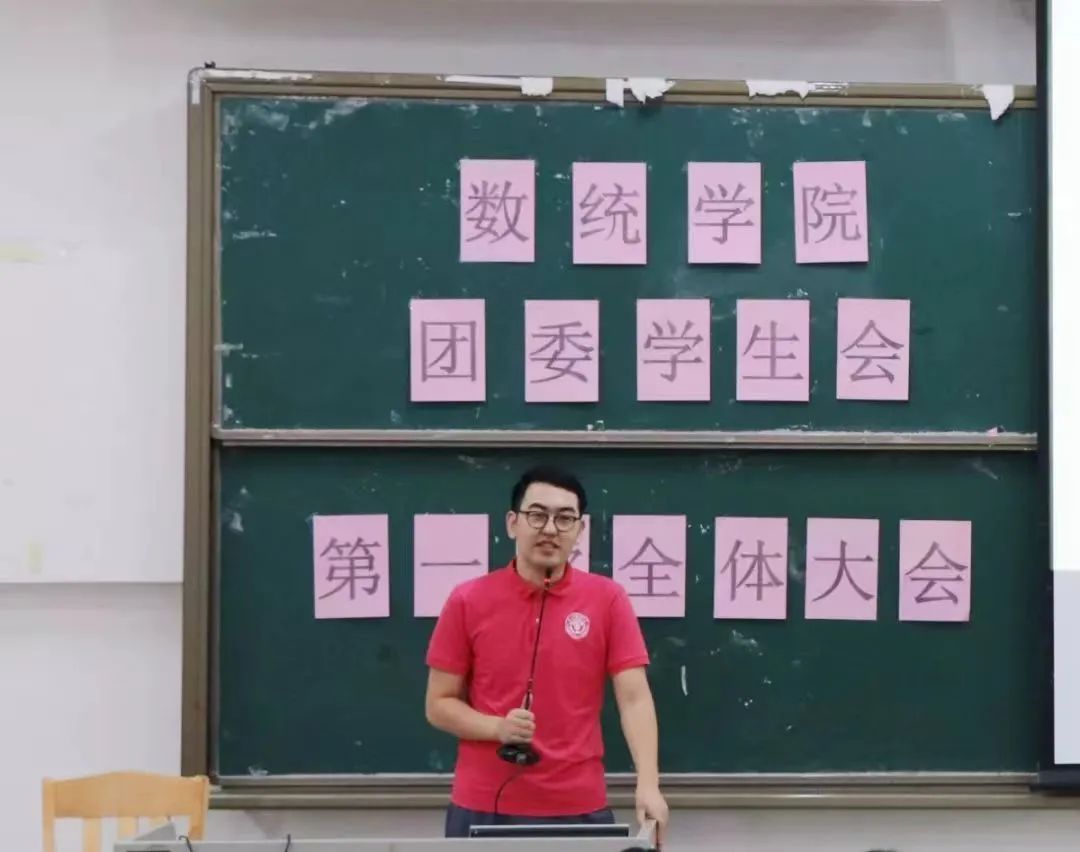 数统学院
团委学生会
第一 全体大会